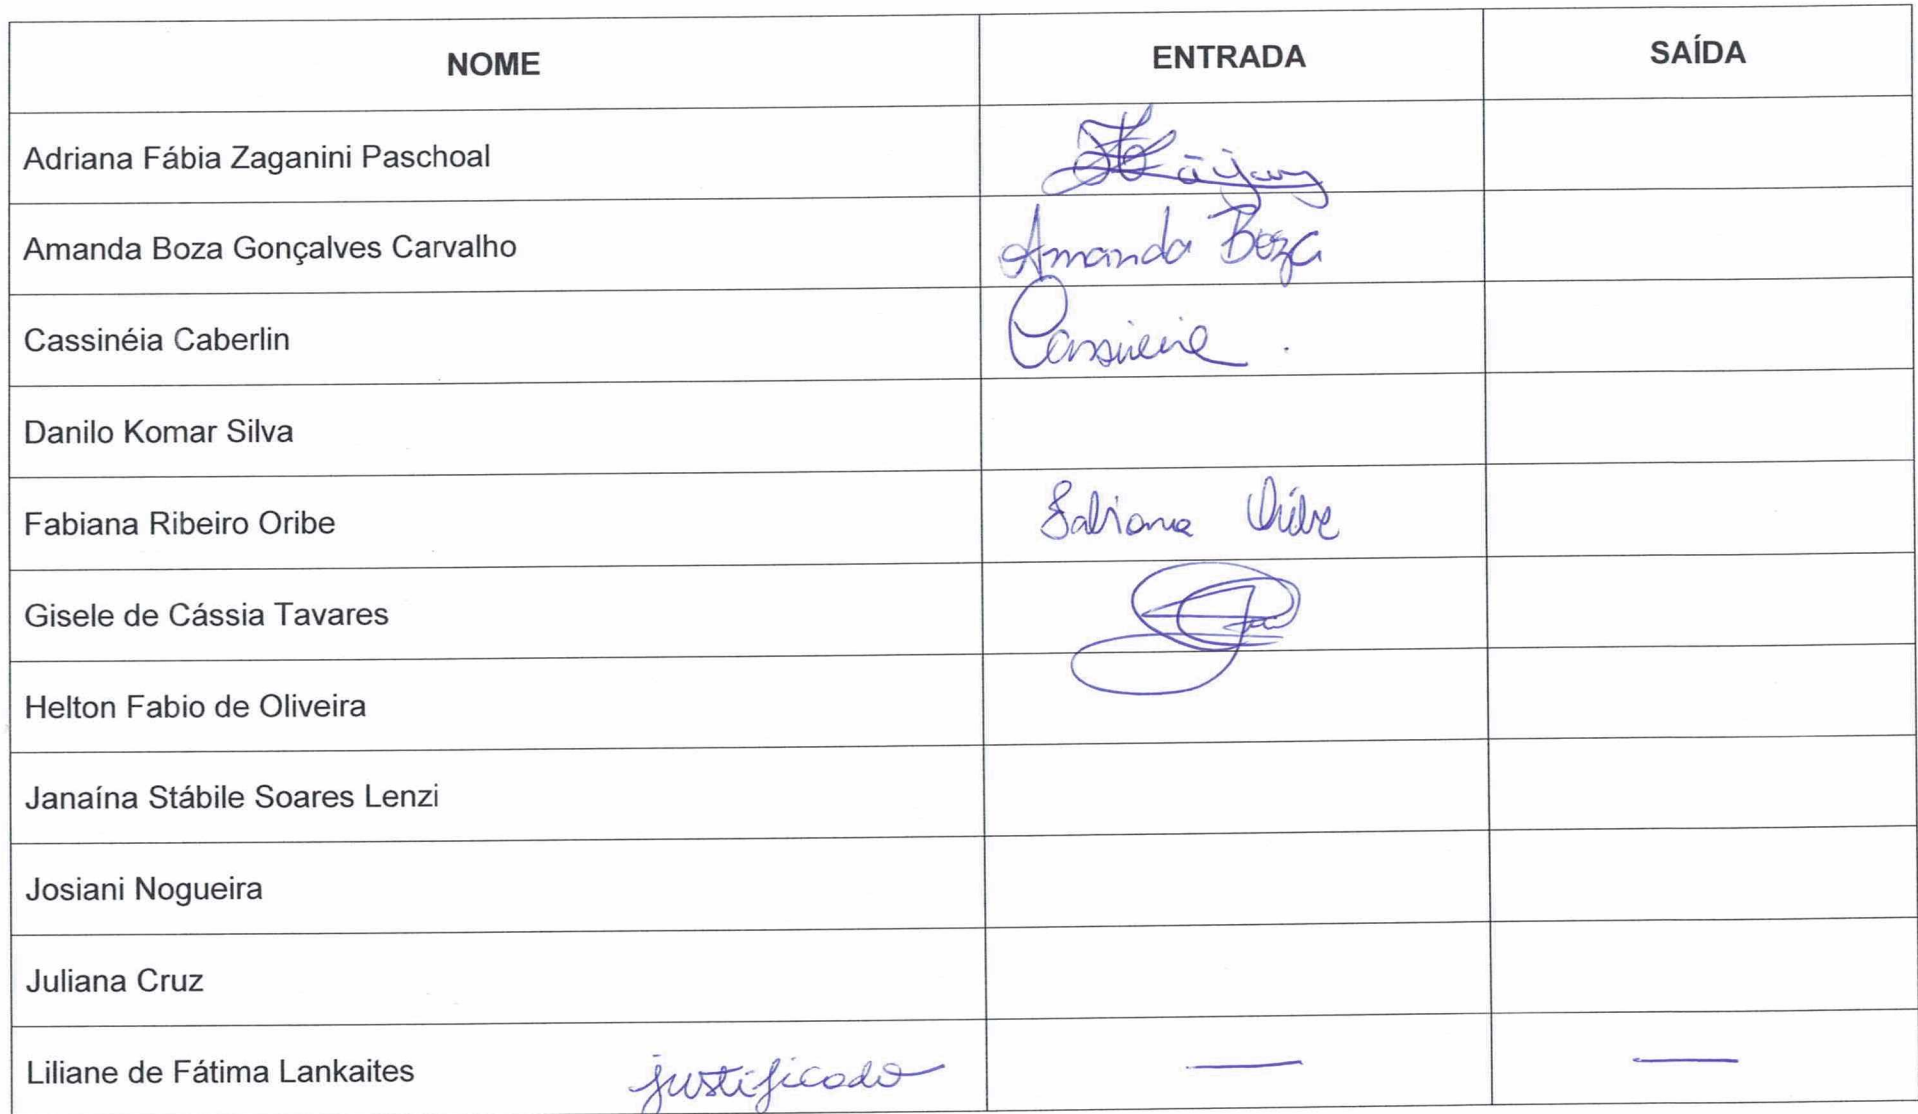 NOME ENTRADA SAÍDA
Adriana Fábia Zaganini Paschoal
Amanda Boza Gonçalves Carvalho Amanda Boza
Cassinéia Caberlin Cassineia
Danilo Komar Silva
Fabiana Ribeiro Oribe Fabiana Oribe
Gisele de Cássia Tavares
Helton Fabio de Oliveira
Janaína Stábile Soares Lenzi
Josiani Nogueira
Juliana Cruz
Liliane de Fátima Lankaites justificado — —